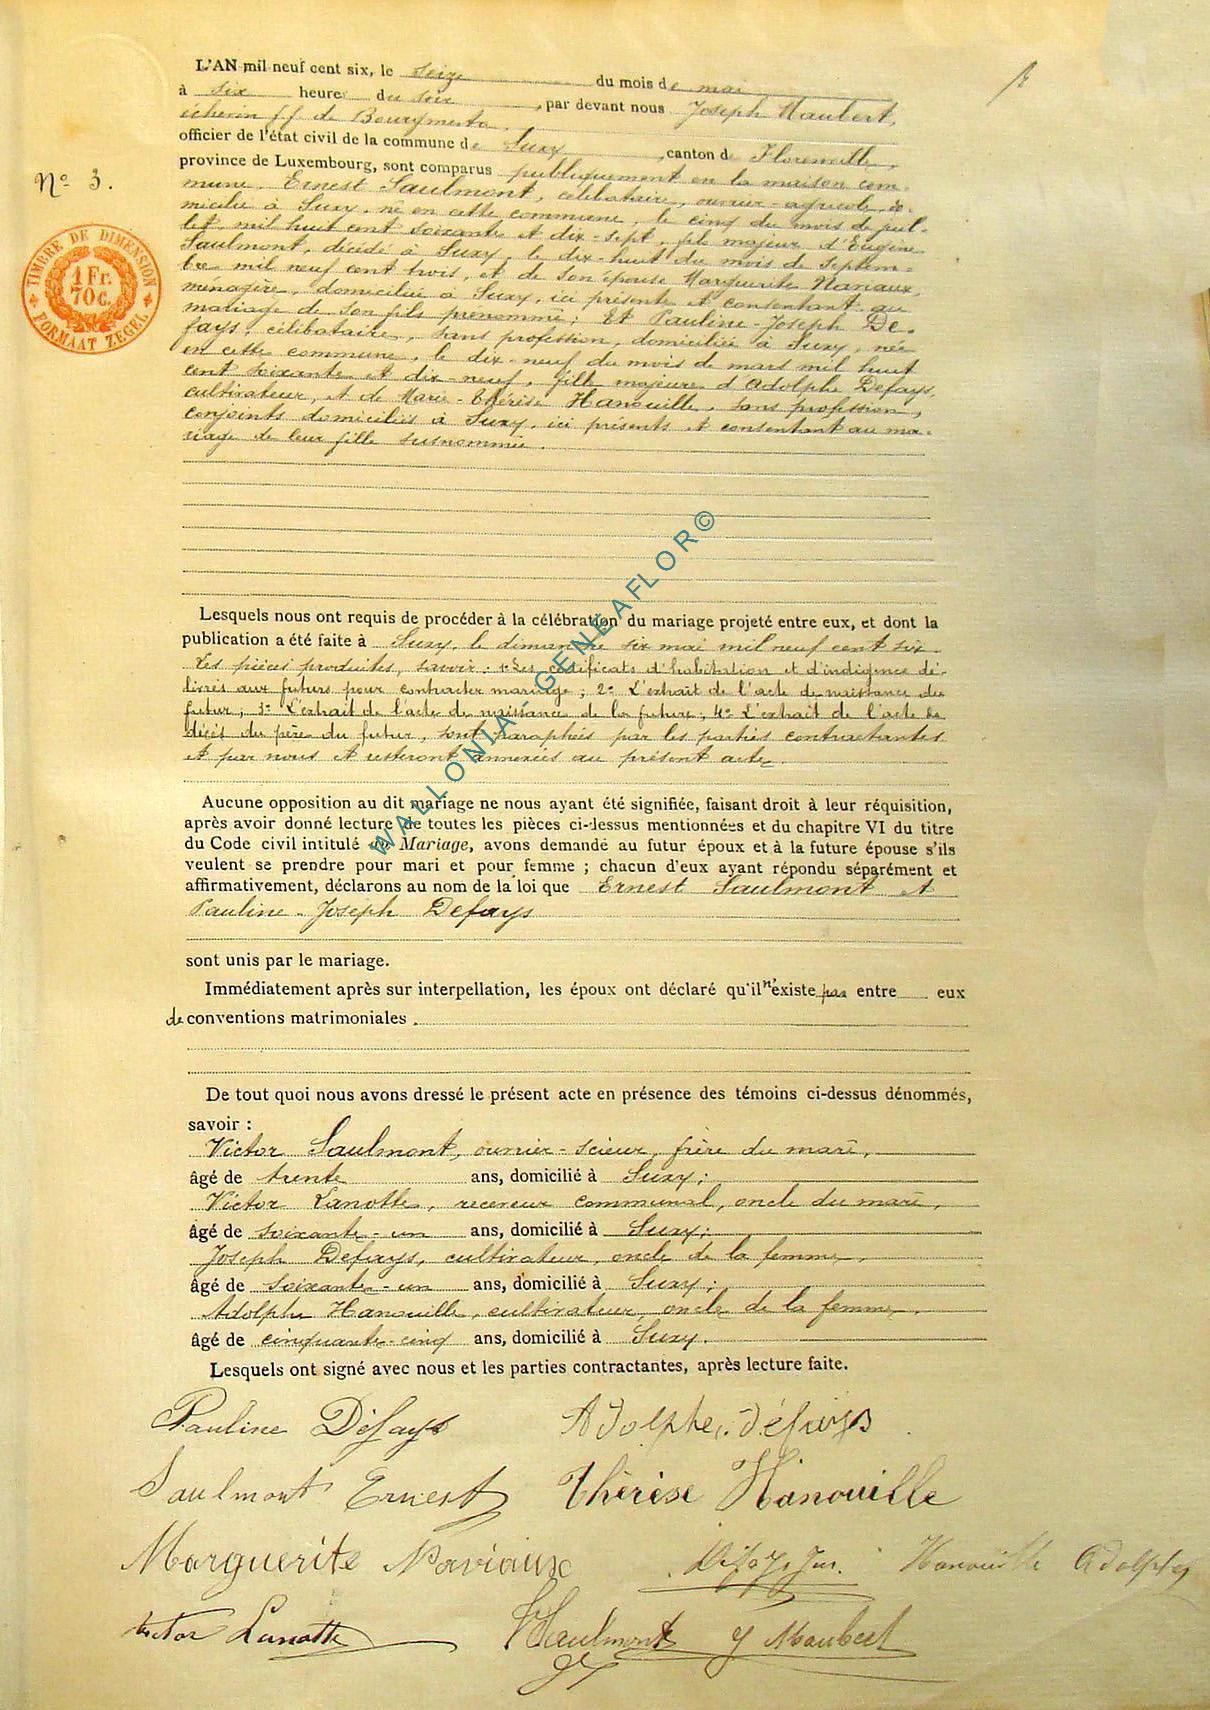 L'AN mil neuf cent six, le seize du mois de mai
à six heures du soir, par devant nous Joseph Maubert,
échevin ff. de Bourgmestre
officier de l'état civil de la commune de Suxy, canton de Florenville,
province de Luxembourg, sont comparus publiquement en la maison com-
mune. Ernest Saulmont, célibataire, ouvrier-agricole, do-
micilié à Suxy, né en cette commune, le cinq du mois de juil-
let mil huit cent soixante et dix-sept, fils majeur d'Eugène
Saulmont, décédé à Suxy, le dix-huit du mois de septem-
bre mil neuf cent trois, et de son épouse Marguerite Naviaux,
ménagère, domiciliée à Suxy, ici présente et consentant au
mariage de son fils prénommé; Et Pauline-Joseph De-
fays célibataire, sans profession, domiciliée à Suxy, née
en cette commune, le dix-neuf du mois de mars mil huit
cent soixante et dix-neuf, fille majeure d'Adolphe Defays,
cultivateur, et de Marie-Thérèse Hanouille, sans profession,
conjoints domiciliés à Suxy, ici présents et consentant au ma-
riage de leur fille susnommée.
N° 3.
TIMBRE DE DIMENSION
1 Fr.
70 C.
FORMAAT ZEGEL
Lesquels nous ont requis de procéder à la célébration du mariage projeté entre eux, et dont la
publication a été faite à Suxy, le dimanche six mai mil neuf cent six.
Les pièces produites, savoir: 1° Les certificats d'habitation et d'indigence dé-
livrés aux futurs pour contracter mariage; 2° L'extrait de l'acte de naissance du
futur; 3° L'extrait de l'acte de naissance de la future; 4° L'extrait de l'acte de
décès du père du futur, sont paraphées par les parties contractantes
et par nous et resteront annexées au présent acte.
Aucune opposition au dit mariage ne nous ayant été signifiée, faisant droit à leur réquisition,
après avoir donné lecture de toutes les pièces ci-dessus mentionnées et du chapitre VI du titre
du Code civil intitulé du Mariage, avons demandé au futur époux et à la future épouse s'ils
veulent se prendre pour mari et pour femme; chacun d'eux ayant répondu séparément et
affirmativement, déclarons au nom de la loi que Ernest Saulmont et
Pauline-Joseph Defays
sont unis par le mariage.
Immédiatement après sur interpellation, les époux ont déclaré qu'il n'existe pas entre eux
de conventions matrimoniales.
De tout quoi nous avons dressé le présent acte en présence des témoins ci-dessus dénommés,
savoir :
Victor Saulmont, ouvrier-scieur, frère du marié,
âgé de trente ans, domicilié à Suxy;
Victor Lanotte, receveur communal, oncle du marié,
âgé de soixante-un ans, domicilié à Suxy;
Joseph Defays, cultivateur, oncle de la femme,
âgé de soixante-un ans, domicilié à Suxy;
Adolphe Hanouille, cultivateur, oncle de la femme,
âgé de cinquante-cinq ans, domicilié à Suxy.
Lesquels ont signé avec nous et les parties contractantes, après lecture faite.
Pauline Défays Adolphe Défays
Saulmont Ernest Thérèse Hanouille
Marguerite Naviaux Défays Jos. Hanouille Adolphe
Victor Lanotte V Saulmont J Maubert
WALLONIA - GENEAFLOR©